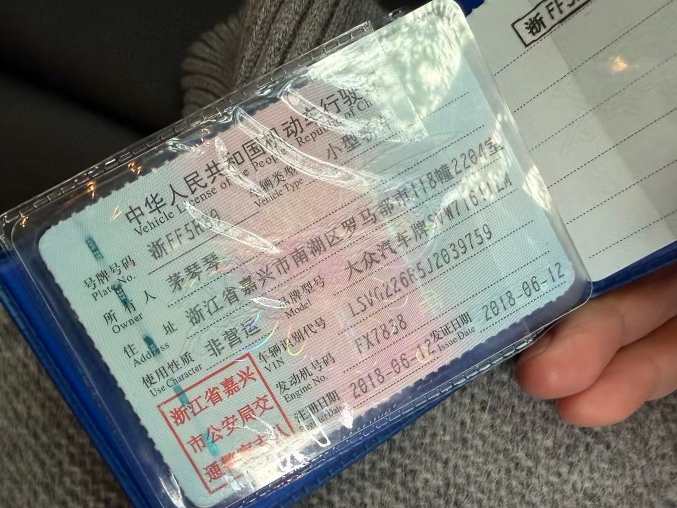 浙FF5
中华人民共和国机动车行驶
Vehicle License of the People's Republic of Ch
号牌号码 浙FF5H 车辆类型 小型
Plate No. Vehicle Type
所有人 茅琴琴
Owner
住址 浙江省嘉兴市南湖区罗马都市118幢2204室
Address
使用性质 非营运 品牌型号 大众汽车牌
Use Character Model
车辆识别代号 LSVG226R5J2039759
VIN
发动机号码 FX7838
Engine No.
注册日期 2018-06-12 发证日期 2018-06-12
Issue Date
浙江省嘉兴
市公安局交